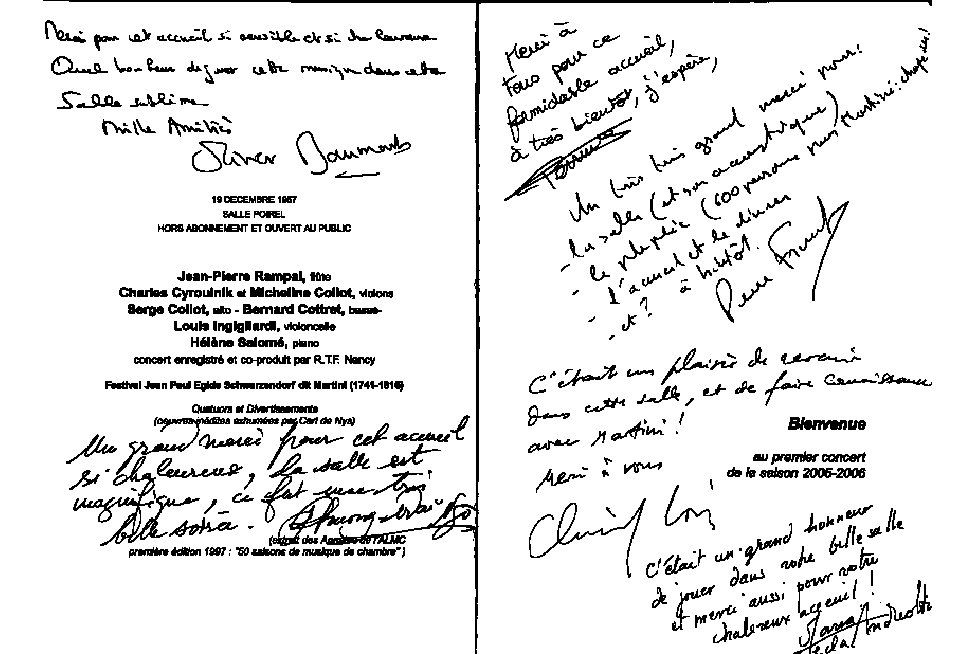 Merci pour cet accueil si sensible et si chaleureux
Quel bonheur de jouer cette musique dans cette
Salle sublime
Mille Amitiés
Olivier Baumont
19 DECEMBRE 1957
SALLE POIREL
HORS ABONNEMENT ET OUVERT AU PUBLIC
Jean-Pierre Rampal, flûte
Charles Cyroulnik et Micheline Collot, violons
Serge Collot, alto - Bernard Cottret, basse-
Louis Ingigliardi, violoncelle
Hélène Salomé, piano
concert enregistré et co-produit par R.T.F. Nancy
Festival Jean Paul Egide Schwarzendorf dit Martini (1741-1816)
Quatuors et Divertissements
(oeuvres inédites exhumées par Carl de Nys)
Un grand merci pour cet accueil
si chaleureux, la salle est
magnifique, ce fut une très
belle soirée.
(extrait des Annales de l'ALMC
première édition 1997 : "50 saisons de musique de chambre" )
Merci à
tous pour ce
formidable accueil,
à très bientôt, j'espère,
Un très très grand merci pour:
- la salle (et son acoustique)
- le public (600 personnes pour Martini: chapeau!)
- l'accueil et le dîner
- et? à bientôt.
C'était un plaisir de revenir
dans cette salle, et de faire connaissance
avec Martini!
Merci à vous
Bienvenue
au premier concert
de la saison 2005-2006
C'était un grand honneur
de jouer dans votre belle salle
et merci aussi pour votre
chaleureux accueil!